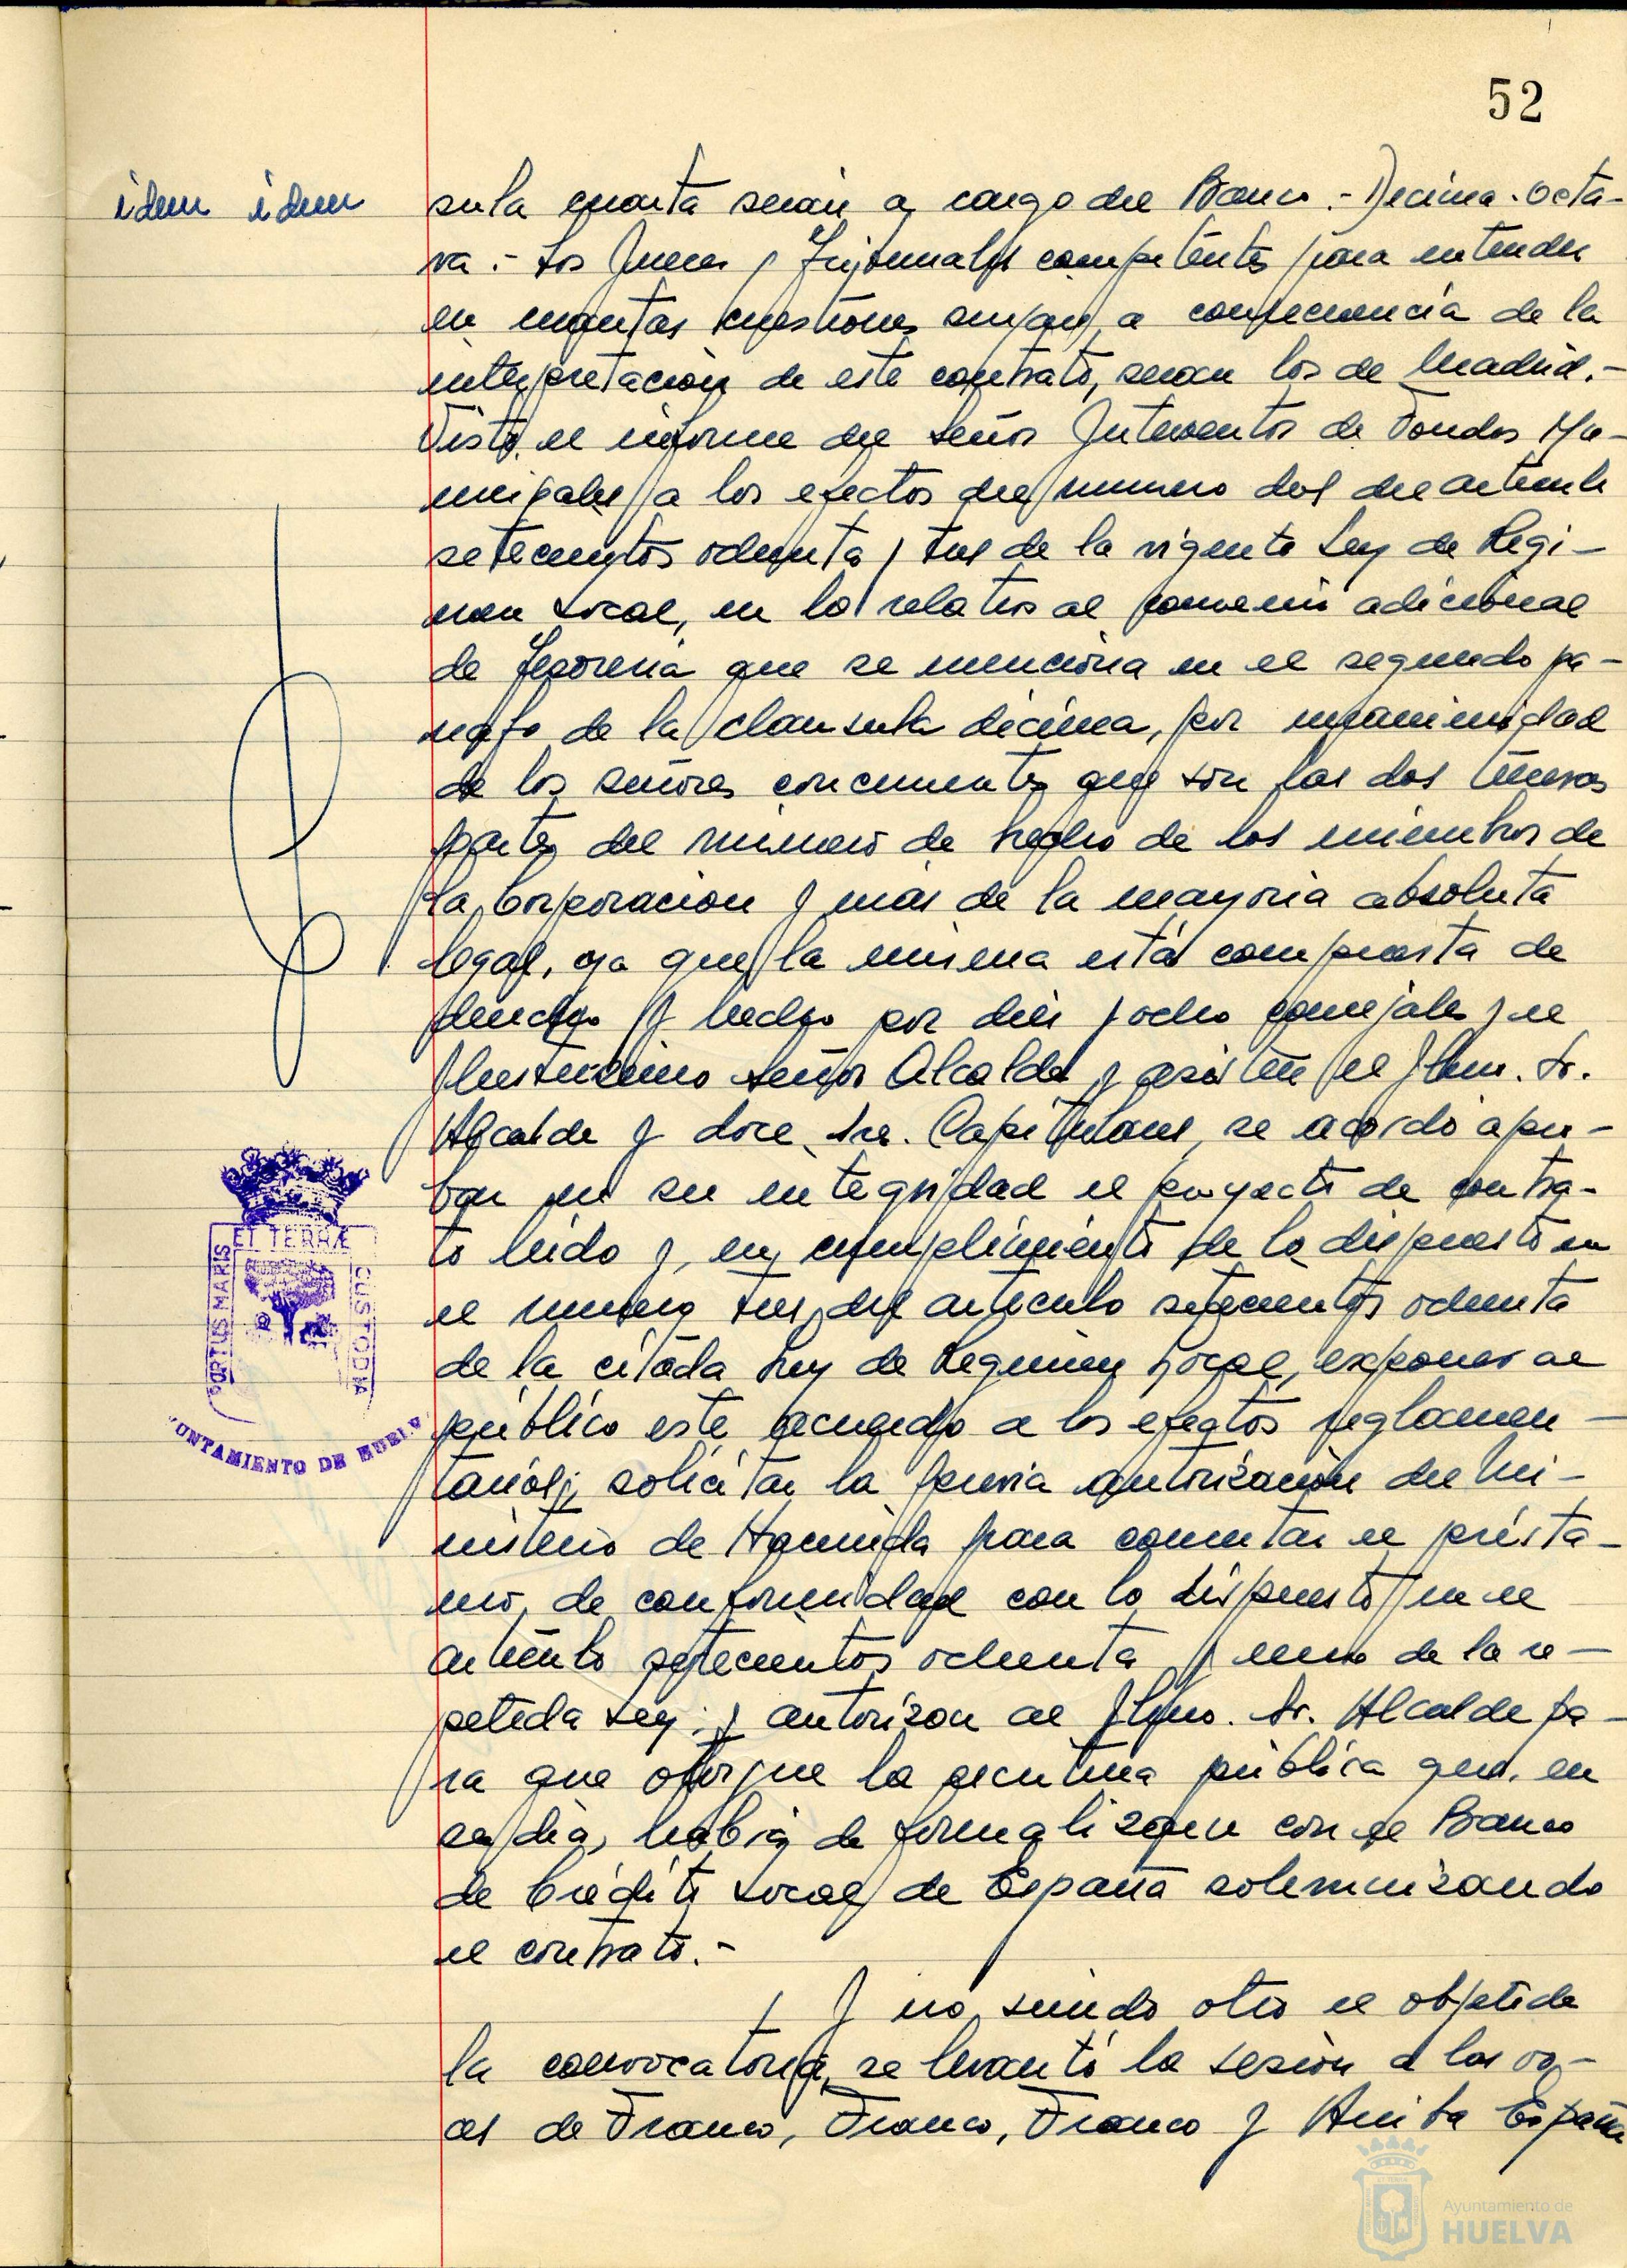 52
idem idem
sula cuarta serán a cargo del Banco.- Decima-octa-
va.- Los Jueces y Tribunales competentes para entender
en cuantas cuestiones surjan a consecuencia de la
interpretación de este contrato, seran los de Madrid.-
Visto el informe del Señor Interventor de Fondos Mu-
nicipales a los efectos del numero dos del articulo
setecientos ochenta y tres de la vigente Ley de Regi-
men Local, en lo relativo al convenio adicional
de Tesoreria que se menciona en el segundo pa-
rrafo de la clausula décima, por unanimidad
de los señores concurrentes que son las dos terceras
partes del número de hecho de los miembros de
la Corporacion y más de la mayoria absoluta
legal, ya que la misma está compuesta de
derecho y hecho por diez y ocho concejales y el
Ilustrisimo Señor Alcalde y asisten el Iltmo. Sr.
Alcalde y doce Sres. Capitulares, se acordó apro-
bar en su integridad el proyecto de contra-
to leido y, en cumplimiento de lo dispuesto en
el numero tres del articulo setecientos ochenta
de la citada Ley de Regimen Local, exponer al
público este acuerdo a los efectos reglamen-
tarios; solicitar la previa autorización del Mi-
nisterio de Hacienda para concertar el présta-
mo, de conformidad con lo dispuesto en el
articulo setecientos ochenta y uno de la re-
petida Ley; y autorizar al Iltmo. Sr. Alcalde pa-
ra que otorgue la escritura pública que, en
su dia, habrá de formalizarse con el Banco
de Crédito Local de España solemnizando
el contrato.-
Y no siendo otro el objeto de
la convocatoria, se levantó la sesión a las vo-
ces de Franco, Franco, Franco y Arriba España
ET TERRÆ
PORTUS MARIS
CUSTODIA
UNTAMIENTO DE HUELV
Ayuntamiento de
HUELVA